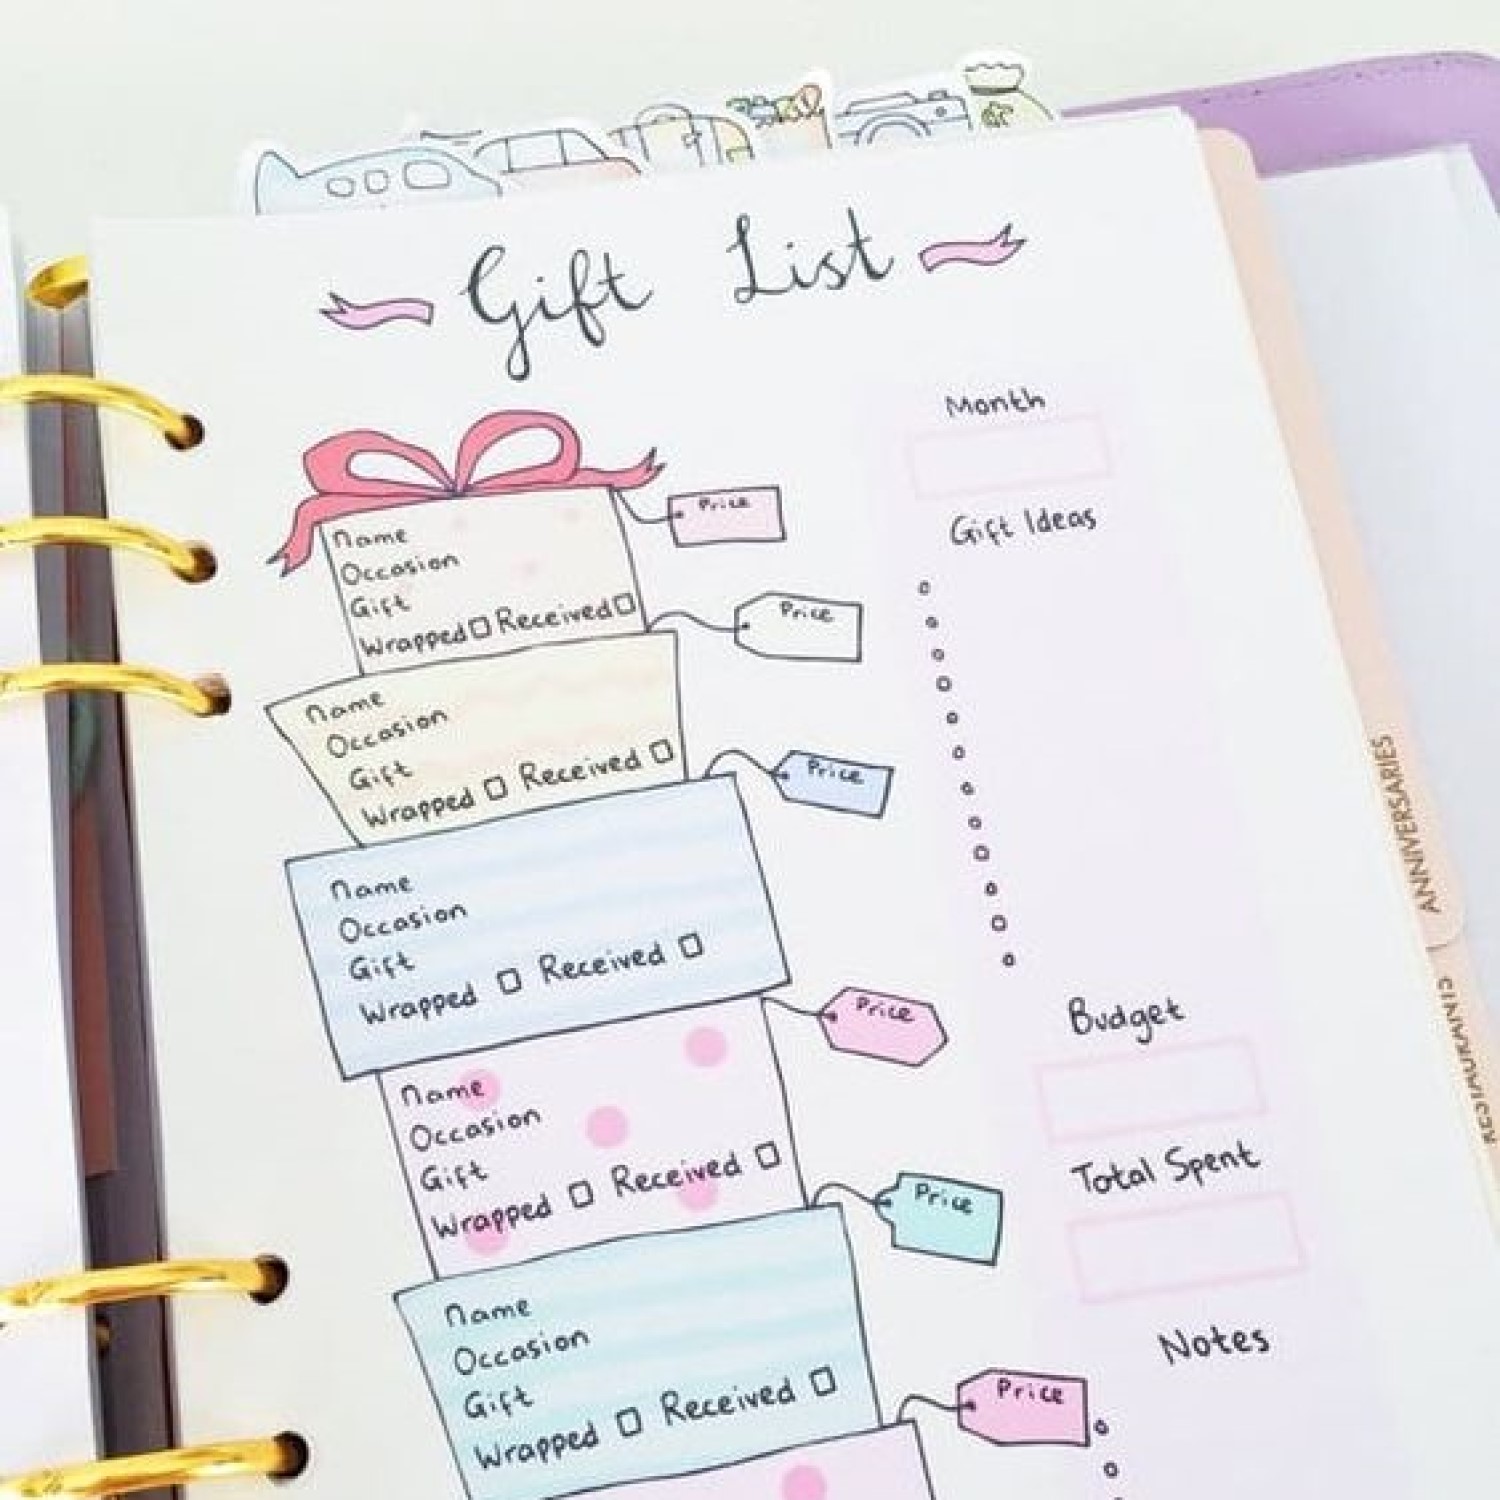 Gift List
Price
Name
Occasion
Gift
Wrapped Received
Price
Name
Occasion
Gift
Wrapped Received
Price
Name
Occasion
Gift
Wrapped Received
Price
Name
Occasion
Gift
Wrapped Received
Price
Name
Occasion
Gift
Wrapped Received
Price
Month
Gift Ideas
Budget
Total Spent
Notes
ANNIVERSARIES